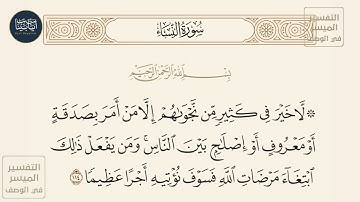 سُورَةُ النِّسَاءِ
التفسير
الميسر
في الوصف
بِسْمِ اللَّهِ الرَّحْمَٰنِ الرَّحِيمِ
۞ لَّا خَيْرَ فِي كَثِيرٍ مِّن نَّجْوَىٰهُمْ إِلَّا مَنْ أَمَرَ بِصَدَقَةٍ
أَوْ مَعْرُوفٍ أَوْ إِصْلَٰحٍۭ بَيْنَ النَّاسِ ۚ وَمَن يَفْعَلْ ذَٰلِكَ
ابْتِغَآءَ مَرْضَاتِ اللَّهِ فَسَوْفَ نُؤْتِيهِ أَجْرًا عَظِيمًا ١١٤
التفسير
الميسر
في الوصف